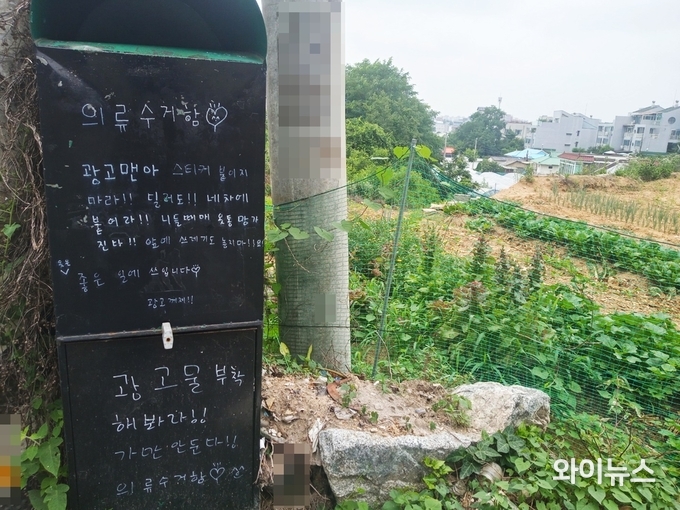 의류수거함♡
광고맨아 스티커 붙이지
마라!! 딜러도!! 네차에
붙여라!! 니들때매 옷통 망가
진다!! 앞에 쓰레기도 놓지마!!요
좋은 일에 쓰입니다♡
광고꺼져!!
광고물 부착
해봐라!!
가만안둔다!!
의류수거함♡
와이뉴스